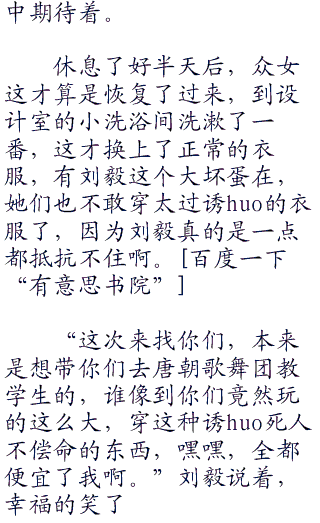 中期待着。
休息了好半天后，众女
这才算是恢复了过来，到设
计室的小洗浴间洗漱了一
番，这才换上了正常的衣
服，有刘毅这个大坏蛋在，
她们也不敢穿太过诱huo的衣
服了，因为刘毅真的是一点
都抵抗不住啊。[百度一下
“有意思书院”]
“这次来找你们，本来
是想带你们去唐朝歌舞团教
学生的，谁像到你们竟然玩
的这么大，穿这种诱huo死人
不偿命的东西，嘿嘿，全都
便宜了我啊。”刘毅说着，
幸福的笑了